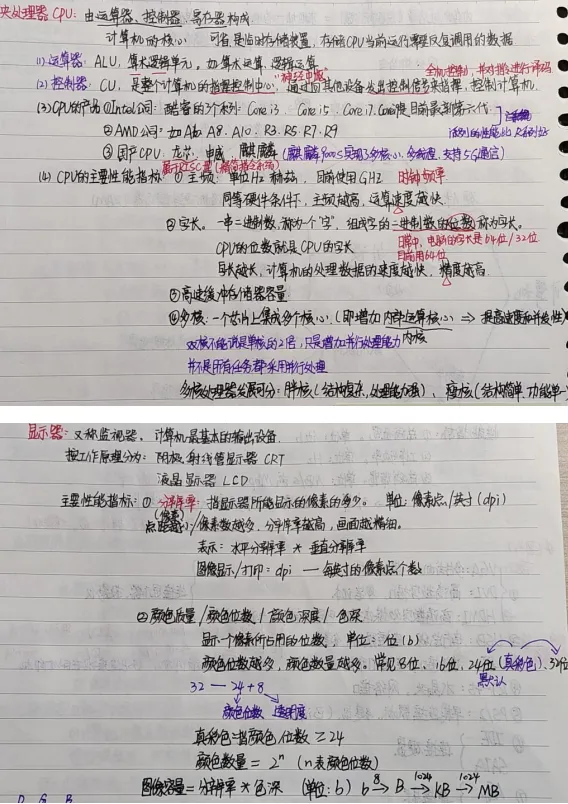 央处理器 CPU：由运算器、控制器、寄存器构成
计算机的核心 可看是临时存储装置，存储CPU当前运行需要反复调用的数据
(1)运算器：ALU，算术逻辑单元。如算术运算、逻辑运算
"神经中枢" 全机控制，并对指令进行译码
(2)控制器：CU，是整个计算机的指挥控制中心，通过向其他设备发出控制信号来指挥，控制计算机
(3)CPU的产品①Intel公司：酷睿的3个系列：Core i3、Core i5、Core i7.
②AMD公司：如A6、A8、A10、R3、R5、R7、R9
③国产CPU：龙芯、申威、麒麟（麒麟9000S实现了多核心、多线程、支持5G通信）
(4) CPU的主要性能指标：①主频：单位Hz 赫兹，目前使用GHZ 时钟频率
同等硬件条件下，主频越高，运算速度越快。
②字长。一串二进制数，称为一个"字"，组成字的二进制数的位数称为字长。
CPU的位数就是CPU的字长 日常中，电脑的字长是64位/32位
目前用64位
字长越大，计算机的处理数据的速度越快，精度越高
③高速缓冲存储器容量
④多核：一个芯片上集成多个核心（即增加内部运算核心）⇒ 提高速度和并发性
内核
双核不能说是单核的2倍，只是增加并行处理能力
并不是所有任务都采用并行处理
多核处理器发展可分：胖核（结构复杂，处理能力强）、瘦核（结构简单，功能单一
显示器：又称监视器，计算机最基本的输出设备
按工作原理分为：阴极射线管显示器 CRT
液晶显示器 LCD
主要性能指标：①分辨率：指显示器所能显示的像素的多少。 单位：像素点/英寸(dpi)
(像素)
点距越小/像素数越多，分辨率越高，画面越精细。
表示：水平分辨率 * 垂直分辨率
图像显示/打印：dpi — 每英寸的像素点个数
②颜色质量/颜色位数/颜色深度/色深
显示一个像素所占用的位数，单位：位(b)
颜色位数越多，颜色数量越多。常见8位、16位、24位(真彩色)、32位
默认
32 — 24+8
颜色位数 透明度
真彩色：指颜色位数 ≥24
颜色数量 = 2ⁿ (n表颜色位数)
图像容量=分辨率*色深 (单位：b) b →8 B →1024 KB →1024 MB